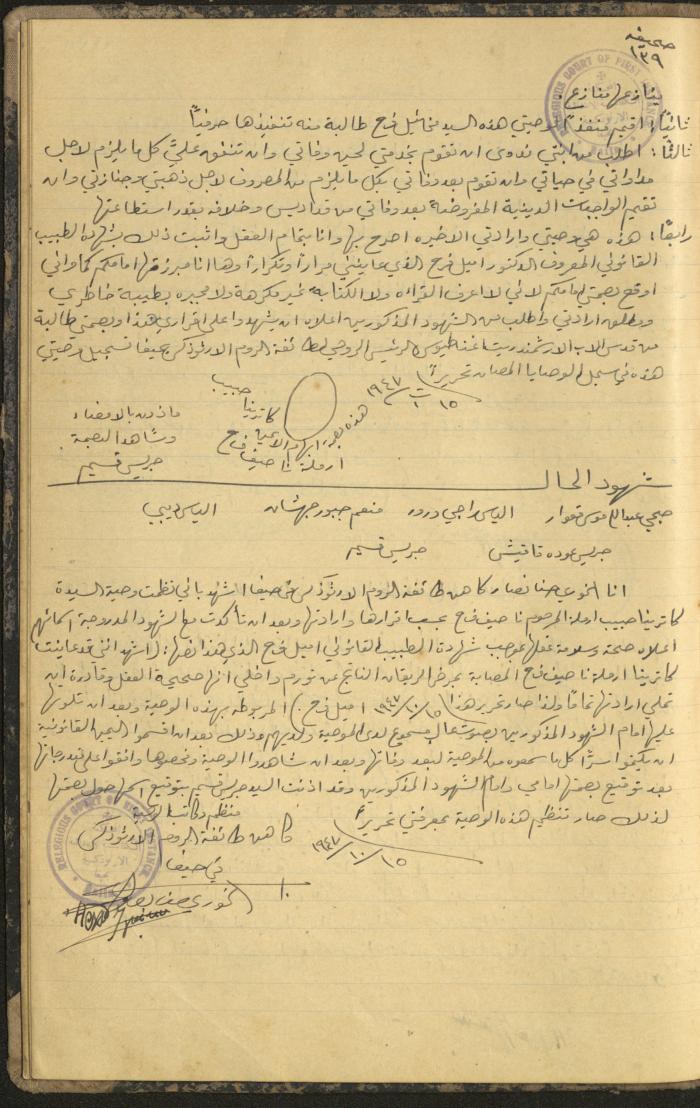 صحيفة
١٣٩
ينازعها منازع.
ثانيًا: اقيم منفذًا لوصيتي هذه السيد ميخائيل فرح طالبة منه تنفيذها حرفيًا
ثالثًا: اطلب من ابنتي ندوى ان تقوم بخدمتي لحين وفاتي وان تنفق عليّ كل ما يلزم لاجل
مداواتي في حياتي وان تقوم بعد وفاتي بكل ما يلزم من المصروف لاجل ذهبتي وجنازتي وان
تقيم الواجبات الدينية المفروضة بعد وفاتي من قداديس وخلافه بقدر استطاعتها
رابعًا: هذه هي وصيتي وارادتي الاخيره اصرح بها وانا بتمام العقل واثبت ذلك بشهادة الطبيب
القانوني المعروف الدكتور اميل فرح الذي عاينني مرارًا وتكرارًا وها انا مبرزتها امامكم كما واني
اوقع بصمتي امامكم لاني لا اعرف القراءه ولا الكتابه غير مكرهة ولا مجبره بطيبة خاطري
ومطلق ارادتي واطلب من الشهود المذكورين اعلاه ان يشهدوا على اقراري هذا وبصمتي طالبة
من قدس الاب الارشمندريت اغناطيوس الرئيس الروحي لطائفة الروم الارثوذكس بحيفا تسجيل وصيتي
هذه في سجل الوصايا المصان تحريرًا في ١٥/ت١/١٩٤٧
هذه بصمة ابهام الايمن
كاترينا حبيب
ارملة ناصيف فرح
ماذون بالامضاء
وشاهد البصمة
جريس قسيم
شهود الحال
صبحي عبدالله موسى قعوار الياس راجي درور منعم جبور جهشان الياس ديبي
جريس عوده قاقيش جريس قسيم
انا الخوري حنا نصار كاهن طائفة الروم الارثوذكس في حيفا اشهد باني نظمت وصية السيدة
كاترينا حبيب ارملة المرحوم ناصيف فرح بحسب اقرارها وارادتها وبعد ان تأكدت مع الشهود المدروجة اسمائهم
اعلاه صحة وسلامة عقلها بموجب شهادة الطبيب القانوني اميل فرح الذي هذا نصها: (اشهد انني قد عاينت
كاترينا ارملة ناصيف فرح المصابة بمرض اليرقان الناتج عن تورم داخلي انها صحيحة العقل وقادرة ان
تملي ارادتها تمامًا ولذا صار تحرير هذا ١٥/١٠/١٩٤٧ اميل فرح) المربوطة بهذه الوصية وبعد ان تلوتها
عليها امام الشهود المذكورين بصوت عال مسموع لدى الموصية ولديهم وذلك بعد ان اقسموا اليمين القانونية
ان يكتموا سرًا كل ما سمعوه من الموصية لبعد وفاتها وبعد ان شاهدوا الوصية وفحصوها وافقوا على مندرجاتها
بعد توقيع بصمتها امامي وامام الشهود المذكورين وقد اذنت السيد جريس قسيم بتوقيع اسمها حول بصمتها
لذلك صار تنظيم هذه الوصية بمعرفتي تحريرًا في ١٥/١٠/١٩٤٧
منظم وكاتب الوصية
كاهن طائفة الروم الارثوذكس
في حيفا
الخوري حنا نصار
RELIGIOUS COURT OF FIRST INSTANCE
RELIGIOUS COURT OF FIRST INSTANCE